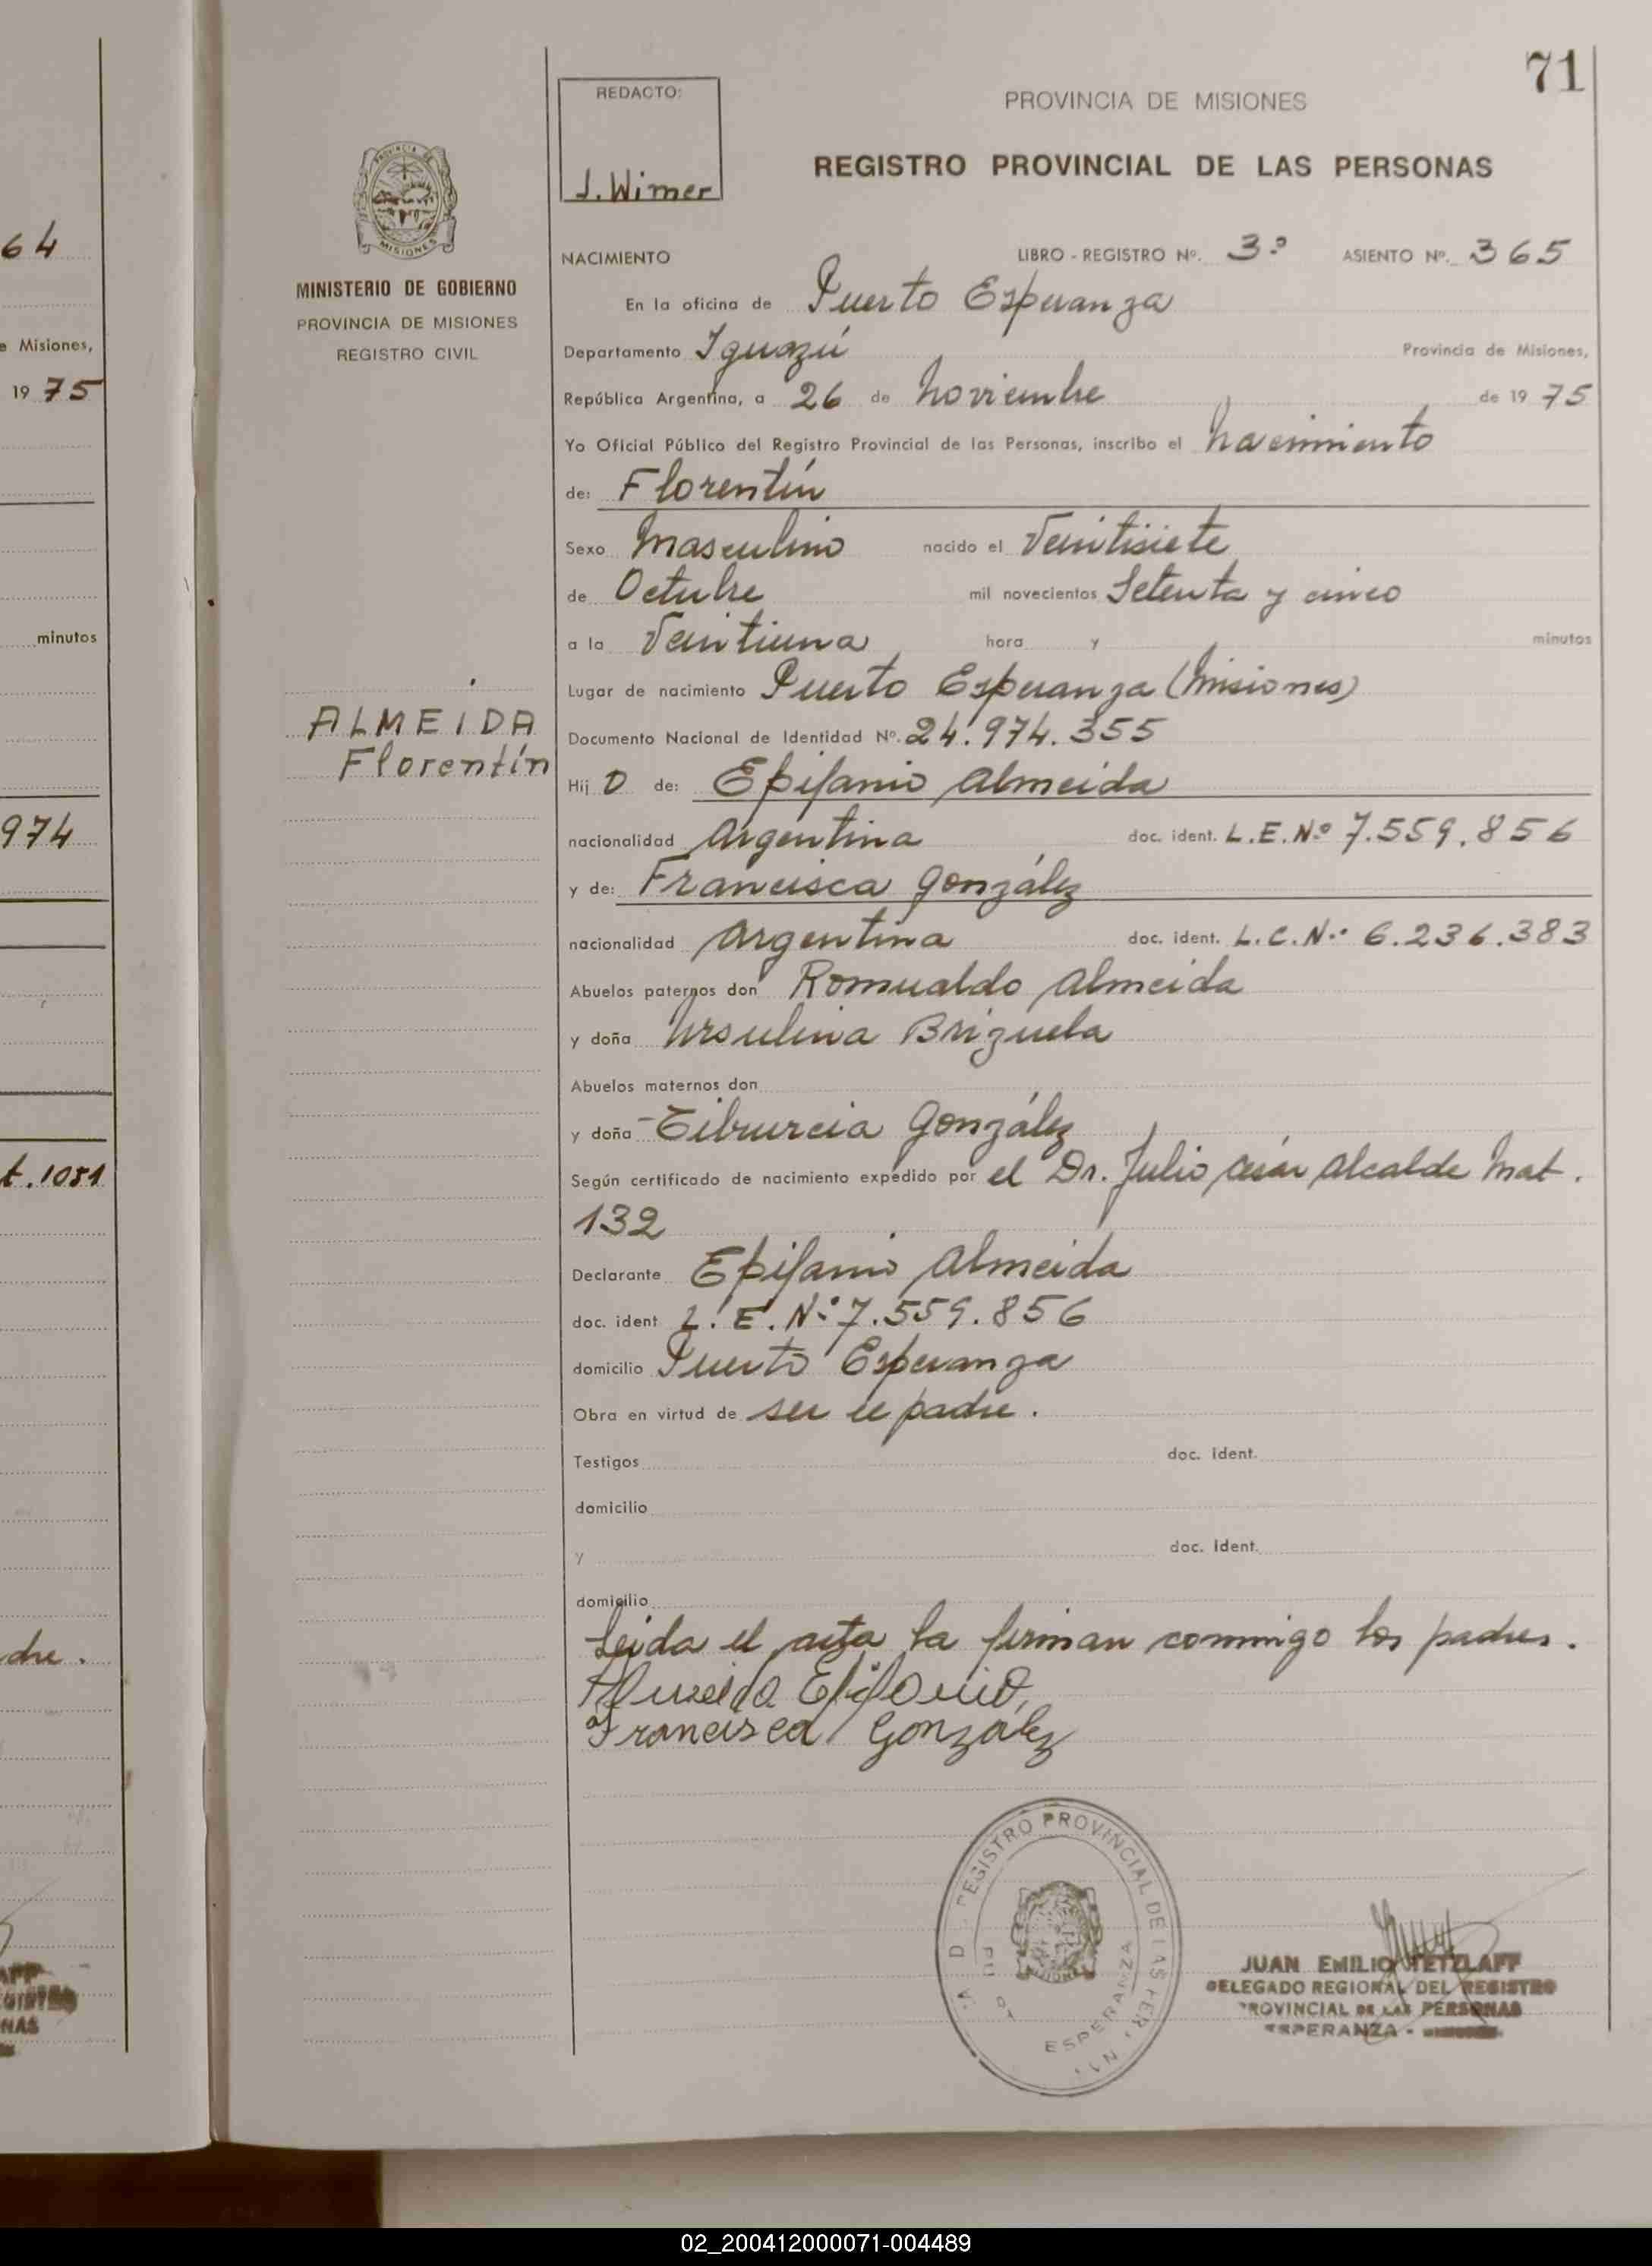 64
e Misiones,
19 75
minutos
974
t. 1051
dre.
71
REDACTO:
J. Wimer
PROVINCIA DE MISIONES
REGISTRO PROVINCIAL DE LAS PERSONAS
PROVINCIA DE
MISIONES
MINISTERIO DE GOBIERNO
PROVINCIA DE MISIONES
REGISTRO CIVIL
NACIMIENTO LIBRO - REGISTRO Nº. 3º ASIENTO Nº. 365
En la oficina de Puerto Esperanza
Departamento Iguazú Provincia de Misiones,
República Argentina, a 26 de Noviembre de 19 75
Yo Oficial Público del Registro Provincial de las Personas, inscribo el Nacimiento
de: Florentín
Sexo Masculino nacido el Veintisiete
de Octubre mil novecientos Setenta y cinco
a la Veintiuna hora y minutos
Lugar de nacimiento Puerto Esperanza (Misiones)
ALMEIDA
Florentín
Documento Nacional de Identidad Nº. 24.974.355
Hij o de: Epifanio Almeida
nacionalidad Argentina doc. ident. L.E.Nº 7.559.856
y de: Francisca González
nacionalidad Argentina doc. ident. L.C.Nº 6.236.383
Abuelos paternos don Romualdo Almeida
y doña Ursulina Brizuela
Abuelos maternos don
y doña Tiburcia González
Según certificado de nacimiento expedido por el Dr. Julio César Alcalde Mat.
132
Declarante Epifanio Almeida
doc. ident L.E.Nº 7.559.856
domicilio Puerto Esperanza
Obra en virtud de ser el padre.
Testigos doc. ident.
domicilio
y doc. ident.
domicilio
Leida el acta la firman conmigo los padres.
Almeida Epifanio
Francisca González
REGISTRO PROVINCIAL DE LAS PER
ESPERANZA
MISIONES
JUAN EMILIO TETZLAFF
DELEGADO REGIONAL DEL REGISTRO
PROVINCIAL DE LAS PERSONAS
ESPERANZA -
02_200412000071-004489